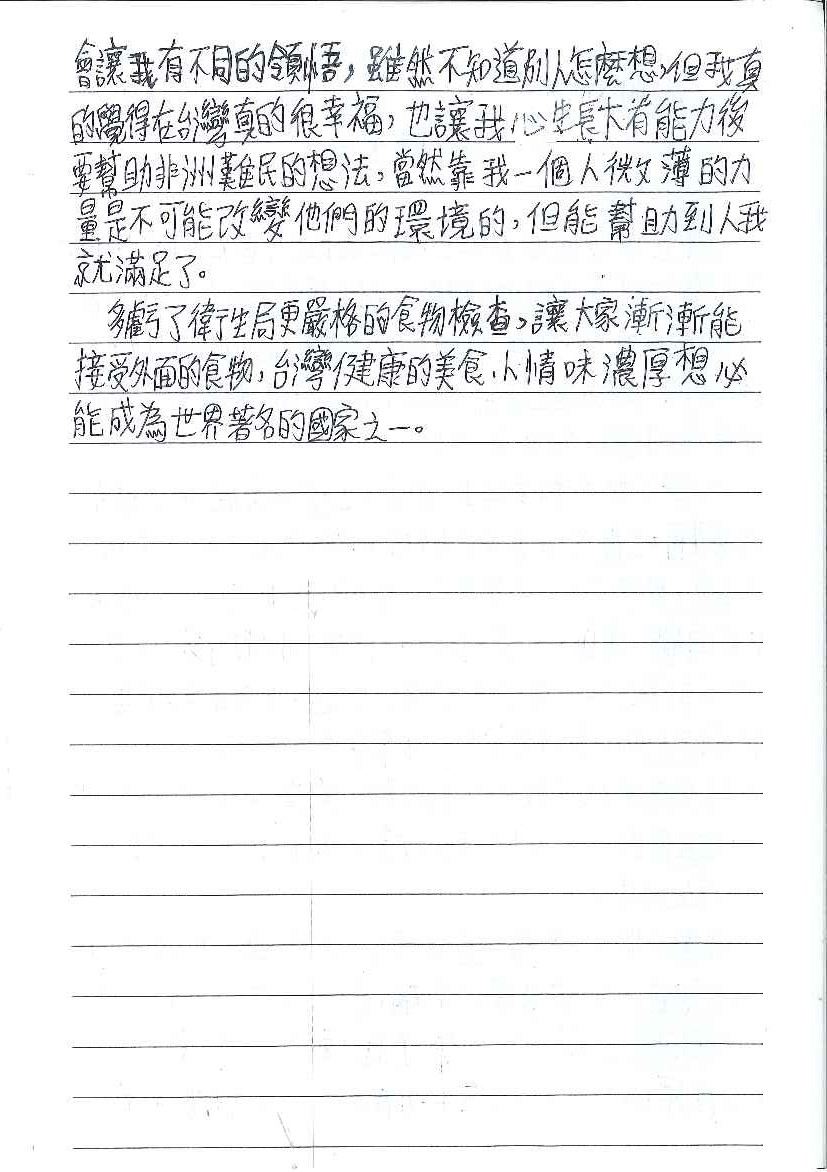 會讓我有不同的領悟，雖然不知道別人怎麼想，但我真
的覺得在台灣真的很幸福，也讓我心生長大有能力後
要幫助非洲難民的想法，當然靠我一個人微薄的力
量是不可能改變他們的環境的，但能幫助到人我
就滿足了。
多虧了衛生局更嚴格的食物檢查，讓大家漸漸能
接受外面的食物，台灣健康的美食、人情味濃厚想必
能成為世界著名的國家之一。